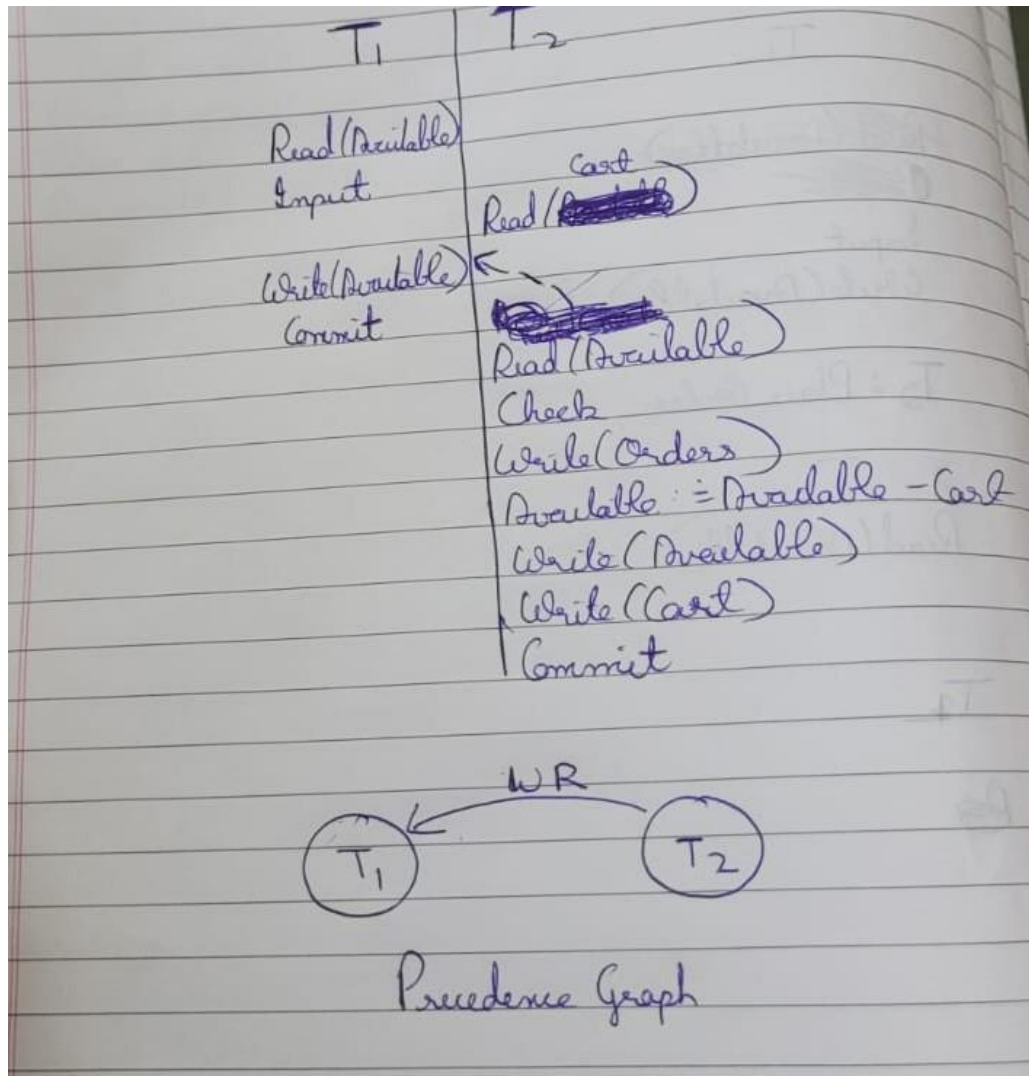 T1 T2
Read(Available)
Input
Cart
Read( )
Write(Available)
Commit
Read(Available)
Check
Write(Orders)
Available := Available - Cart
Write(Available)
Write(Cart)
Commit
WR
T1 T2
Precedence Graph